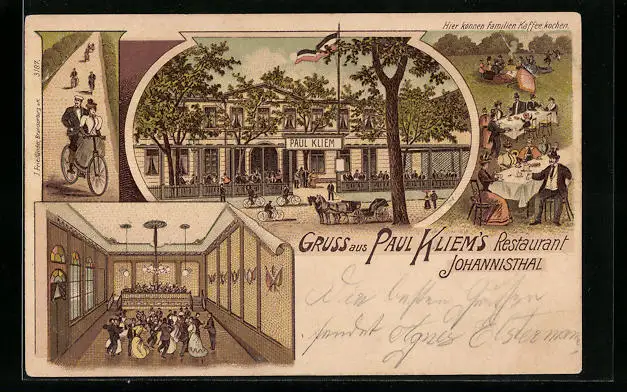 Hier können Familien Kaffee kochen.
3187.
PAUL KLIEM
GRUSS aus PAUL KLIEM'S Restaurant
JOHANNISTHAL
Die besten Grüßen
sendet Agnes Elstermann